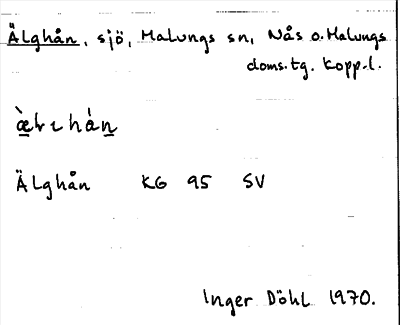 Älghån, sjö, Malungs sn, Nås o. Malungs
doms.tg. Kopp.l.
Älghån KG 95 SV
Inger Döhl 1970.